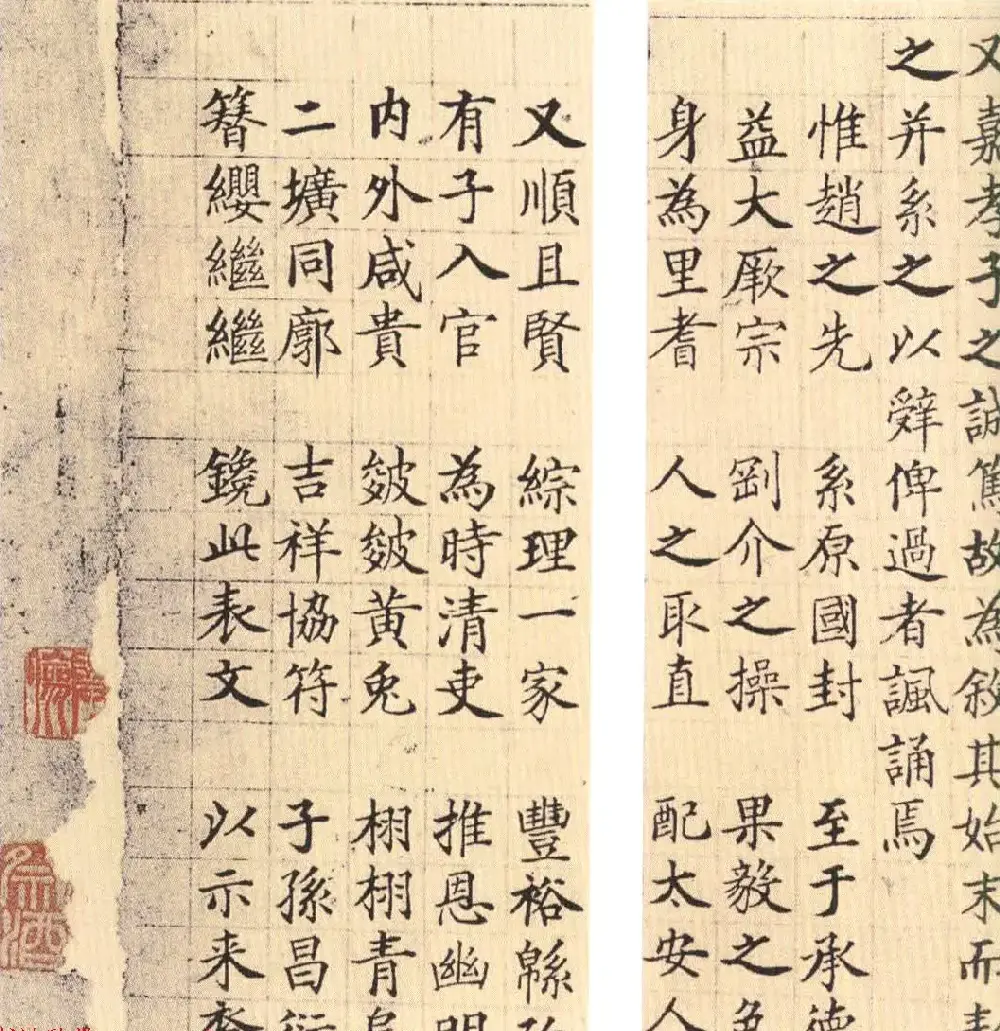 又嘉孝子之誠篤故為敘其始末而
之并系之以辤俾過者諷誦焉
惟趙之先 系原國封 至于承德
益大厥宗 剛介之操 果毅之
身為里耆 人之取直 配太安人
又順且賢 綜理一家 豐裕緜
有子入官 為時清吏 推恩幽明
内外咸貴 皴皴黄兔 栩栩青烏
二壙同廓 吉祥協符 子孫昌衍
簪纓繼繼 鑱此表文 以示来裔